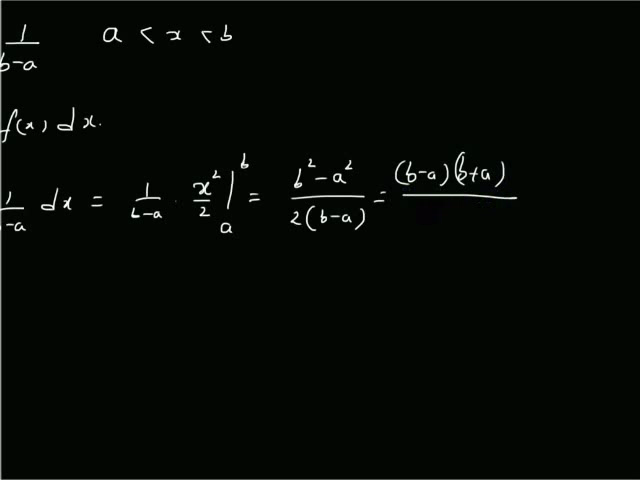 1/(b-a) a < x < b
f(x) dx.
1/(b-a) dx = 1/(b-a) · x²/2 |_a^b = (b² - a²)/(2(b-a)) = (b-a)(b+a)/